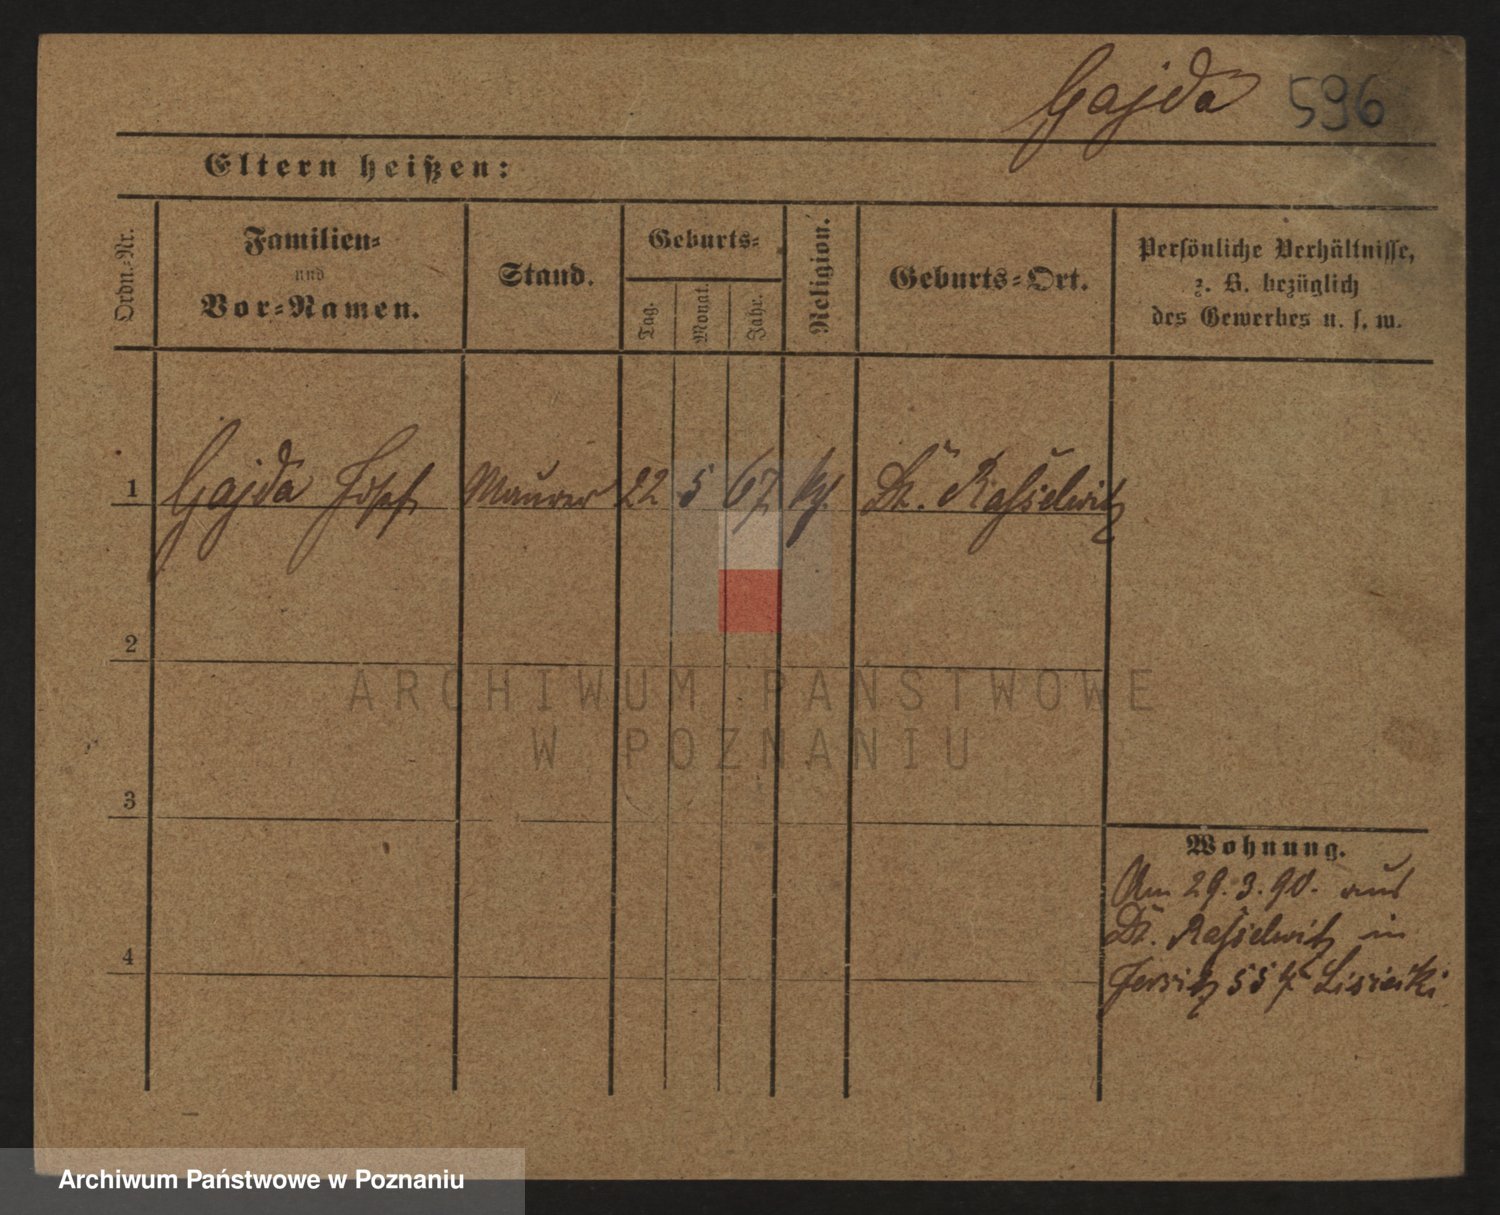 Gajda 596
Eltern heißen:
Ordn.-Nr.
Familien-
und
Vor-Namen.
Stand.
Geburts-
Tag.
Monat.
Jahr.
Religion.
Geburts-Ort.
Persönliche Verhältnisse,
z. B. bezüglich
des Gewerbes u. s. w.
1 Gajda Josef Maurer 22 5 67 Dt. Rasselwitz
2
3
4
Wohnung.
Am 29.3.90. aus
Dt. Rasselwitz in
Jersitz 55
ARCHIWUM PAŃSTWOWE
W POZNANIU
Archiwum Państwowe w Poznaniu